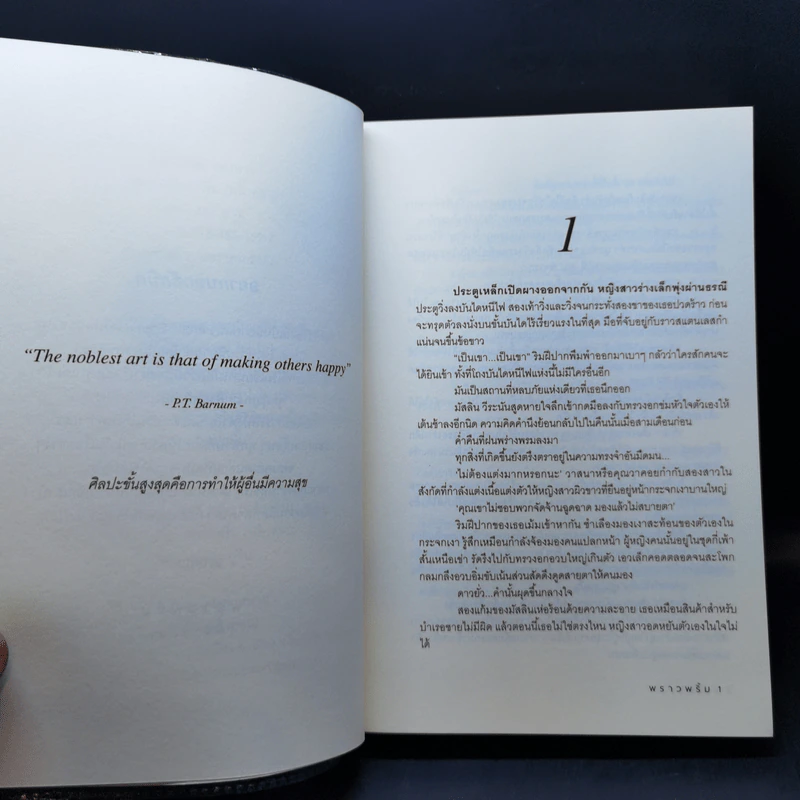 “The noblest art is that of making others happy”
- P.T. Barnum -
ศิลปะขั้นสูงสุดคือการทำให้ผู้อื่นมีความสุข
1
ประตูเหล็กเปิดผางออกจากกัน หญิงสาวร่างเล็กพุ่งผ่านธรณี
ประตูวิ่งลงบันไดหนีไฟ สองเท้าวิ่งและวิ่งจนกระทั่งสองขาของเธอปวดร้าว ก่อน
จะทรุดตัวลงนั่งบนขั้นบันไดไร้เรี่ยวแรงในที่สุด มือที่จับอยู่กับราวสแตนเลสกำ
แน่นจนขึ้นข้อขาว
“เป็นเขา...เป็นเขา” ริมฝีปากพึมพำออกมาเบาๆ กลัวว่าใครสักคนจะ
ได้ยินเข้า ทั้งที่โถงบันไดหนีไฟแห่งนี้ไม่มีใครอื่นอีก
มันเป็นสถานที่หลบภัยแห่งเดียวที่เธอนึกออก
มัสลิน วีระนันสูดหายใจลึกเข้ากดมือลงกับทรวงอกข่มหัวใจตัวเองให้
เต้นช้าลงอีกนิด ความคิดคำนึงย้อนกลับไปในคืนนั้นเมื่อสามเดือนก่อน
ค่ำคืนที่ฝนพร่างพรมลงมา
ทุกสิ่งที่เกิดขึ้นยังตรึงตราอยู่ในความทรงจำอันมืดมน...
‘ไม่ต้องแต่งมากหรอกนะ’ วาสนาหรือคุณวาคอยกำกับสองสาวใน
สังกัดที่กำลังแต่งเนื้อแต่งตัวให้หญิงสาวผิวขาวที่ยืนอยู่หน้ากระจกเงาบานใหญ่
‘คุณเขาไม่ชอบพวกจัดจ้านฉูดฉาด มองแล้วไม่สบายตา’
ริมฝีปากของเธอเม้มเข้าหากัน ชำเลืองมองเงาสะท้อนของตัวเองใน
กระจกเงา รู้สึกเหมือนกำลังจ้องมองคนแปลกหน้า ผู้หญิงคนนั้นอยู่ในชุดกี่เพ้า
สั้นเหนือเข่า รัดรึงไปกับทรวงอกอวบใหญ่เกินตัว เอวเล็กคอดตลอดจนสะโพก
กลมกลึงอวบอิ่มขับเน้นส่วนสัดดึงดูดสายตาให้คนมอง
ดาวยั่ว...คำนั้นผุดขึ้นกลางใจ
สองแก้มของมัสลินเห่อร้อนด้วยความละอาย เธอเหมือนสินค้าสำหรับ
บำเรอชายไม่มีผิด แล้วตอนนี้เธอไม่ใช่ตรงไหน หญิงสาวอดหยันตัวเองในใจไม่
ได้
พราวพริ้ม 1